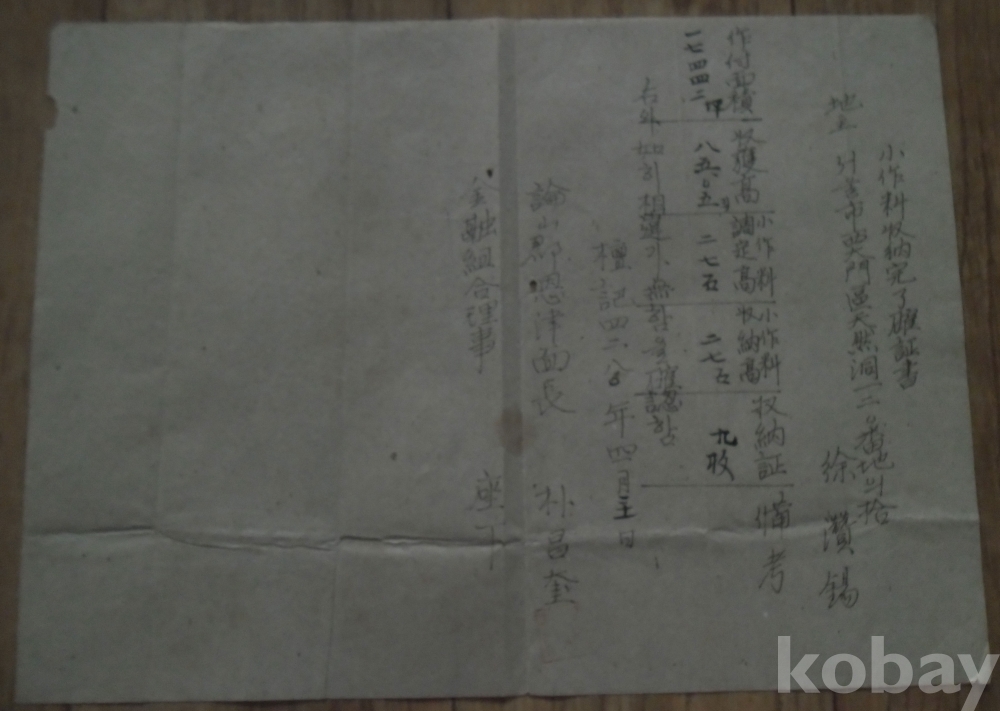 小作料收納完了確証書
地主 서울市西大門區天然洞一二〇番地의拾
徐 瓚 錫
作付面積 收穫高 小作料調定高 小作料收納高 收納証 備考
一七四四二坪 二七石 二七石 九枚
右와如히相違가無함을確認함
檀記四二八 年四月 日
論山郡恩津面長 朴昌奎
金融組合理事 座下
kobay